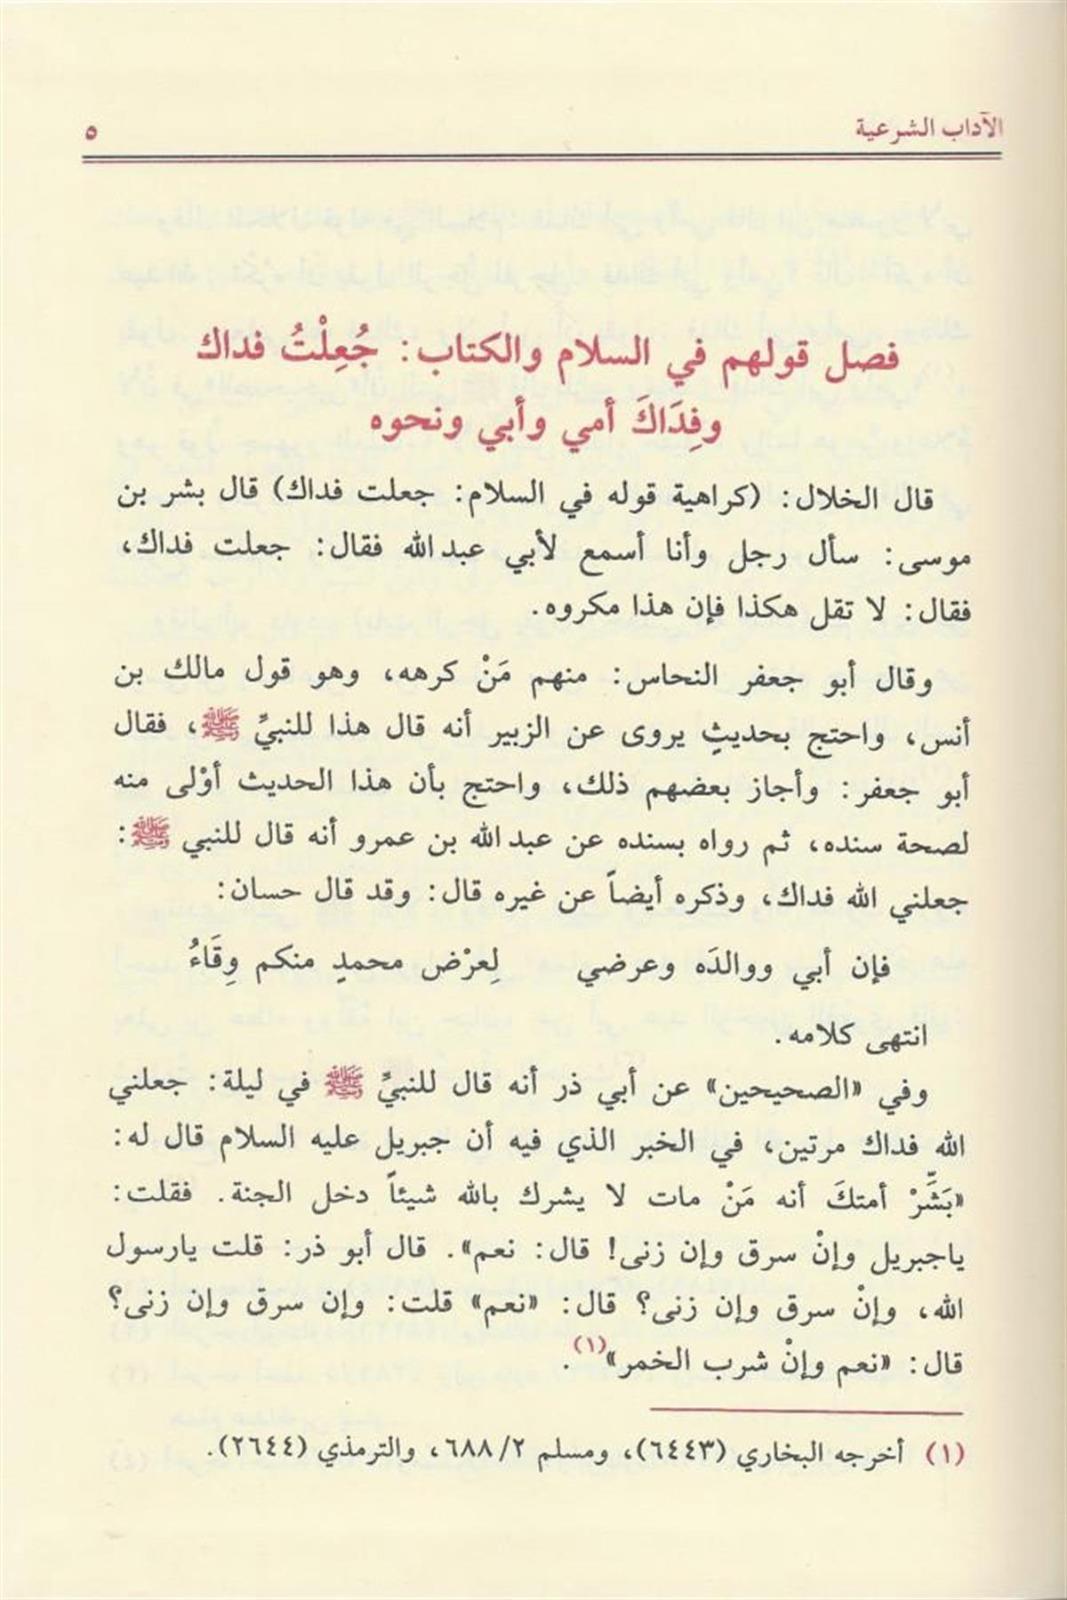 الآداب الشرعية ٥
فصل قولهم في السلام والكتاب: جُعِلْتُ فداك
وفِدَاكَ أمي وأبي ونحوه
قال الخلال: (كراهية قوله في السلام: جعلت فداك) قال بشر بن
موسى: سأل رجل وأنا أسمع لأبي عبدالله فقال: جعلت فداك،
فقال: لا تقل هكذا فإن هذا مكروه.
وقال أبو جعفر النحاس: منهم مَنْ كرهه، وهو قول مالك بن
أنس، واحتج بحديثٍ يروى عن الزبير أنه قال هذا للنبيِّ ﷺ، فقال
أبو جعفر: وأجاز بعضهم ذلك، واحتج بأن هذا الحديث أوْلى منه
لصحة سنده، ثم رواه بسنده عن عبدالله بن عمرو أنه قال للنبي ﷺ:
جعلني الله فداك، وذكره أيضاً عن غيره قال: وقد قال حسان:
فإن أبي ووالدَه وعرضي لِعرْض محمدٍ منكم وِقَاءُ
انتهى كلامه.
وفي «الصحيحين» عن أبي ذر أنه قال للنبيِّ ﷺ في ليلة: جعلني
الله فداك مرتين، في الخبر الذي فيه أن جبريل عليه السلام قال له:
«بَشِّرْ أمتكَ أنه مَنْ مات لا يشرك بالله شيئاً دخل الجنة. فقلت:
ياجبريل وإنْ سرق وإن زنى! قال: نعم». قال أبو ذر: قلت يارسول
الله، وإنْ سرق وإن زنى؟ قال: «نعم» قلت: وإن سرق وإن زنى؟
قال: «نعم وإنْ شرب الخمر»(١).
(١) أخرجه البخاري (٦٤٤٣)، ومسلم ٦٨٨/٢، والترمذي (٢٦٤٤).